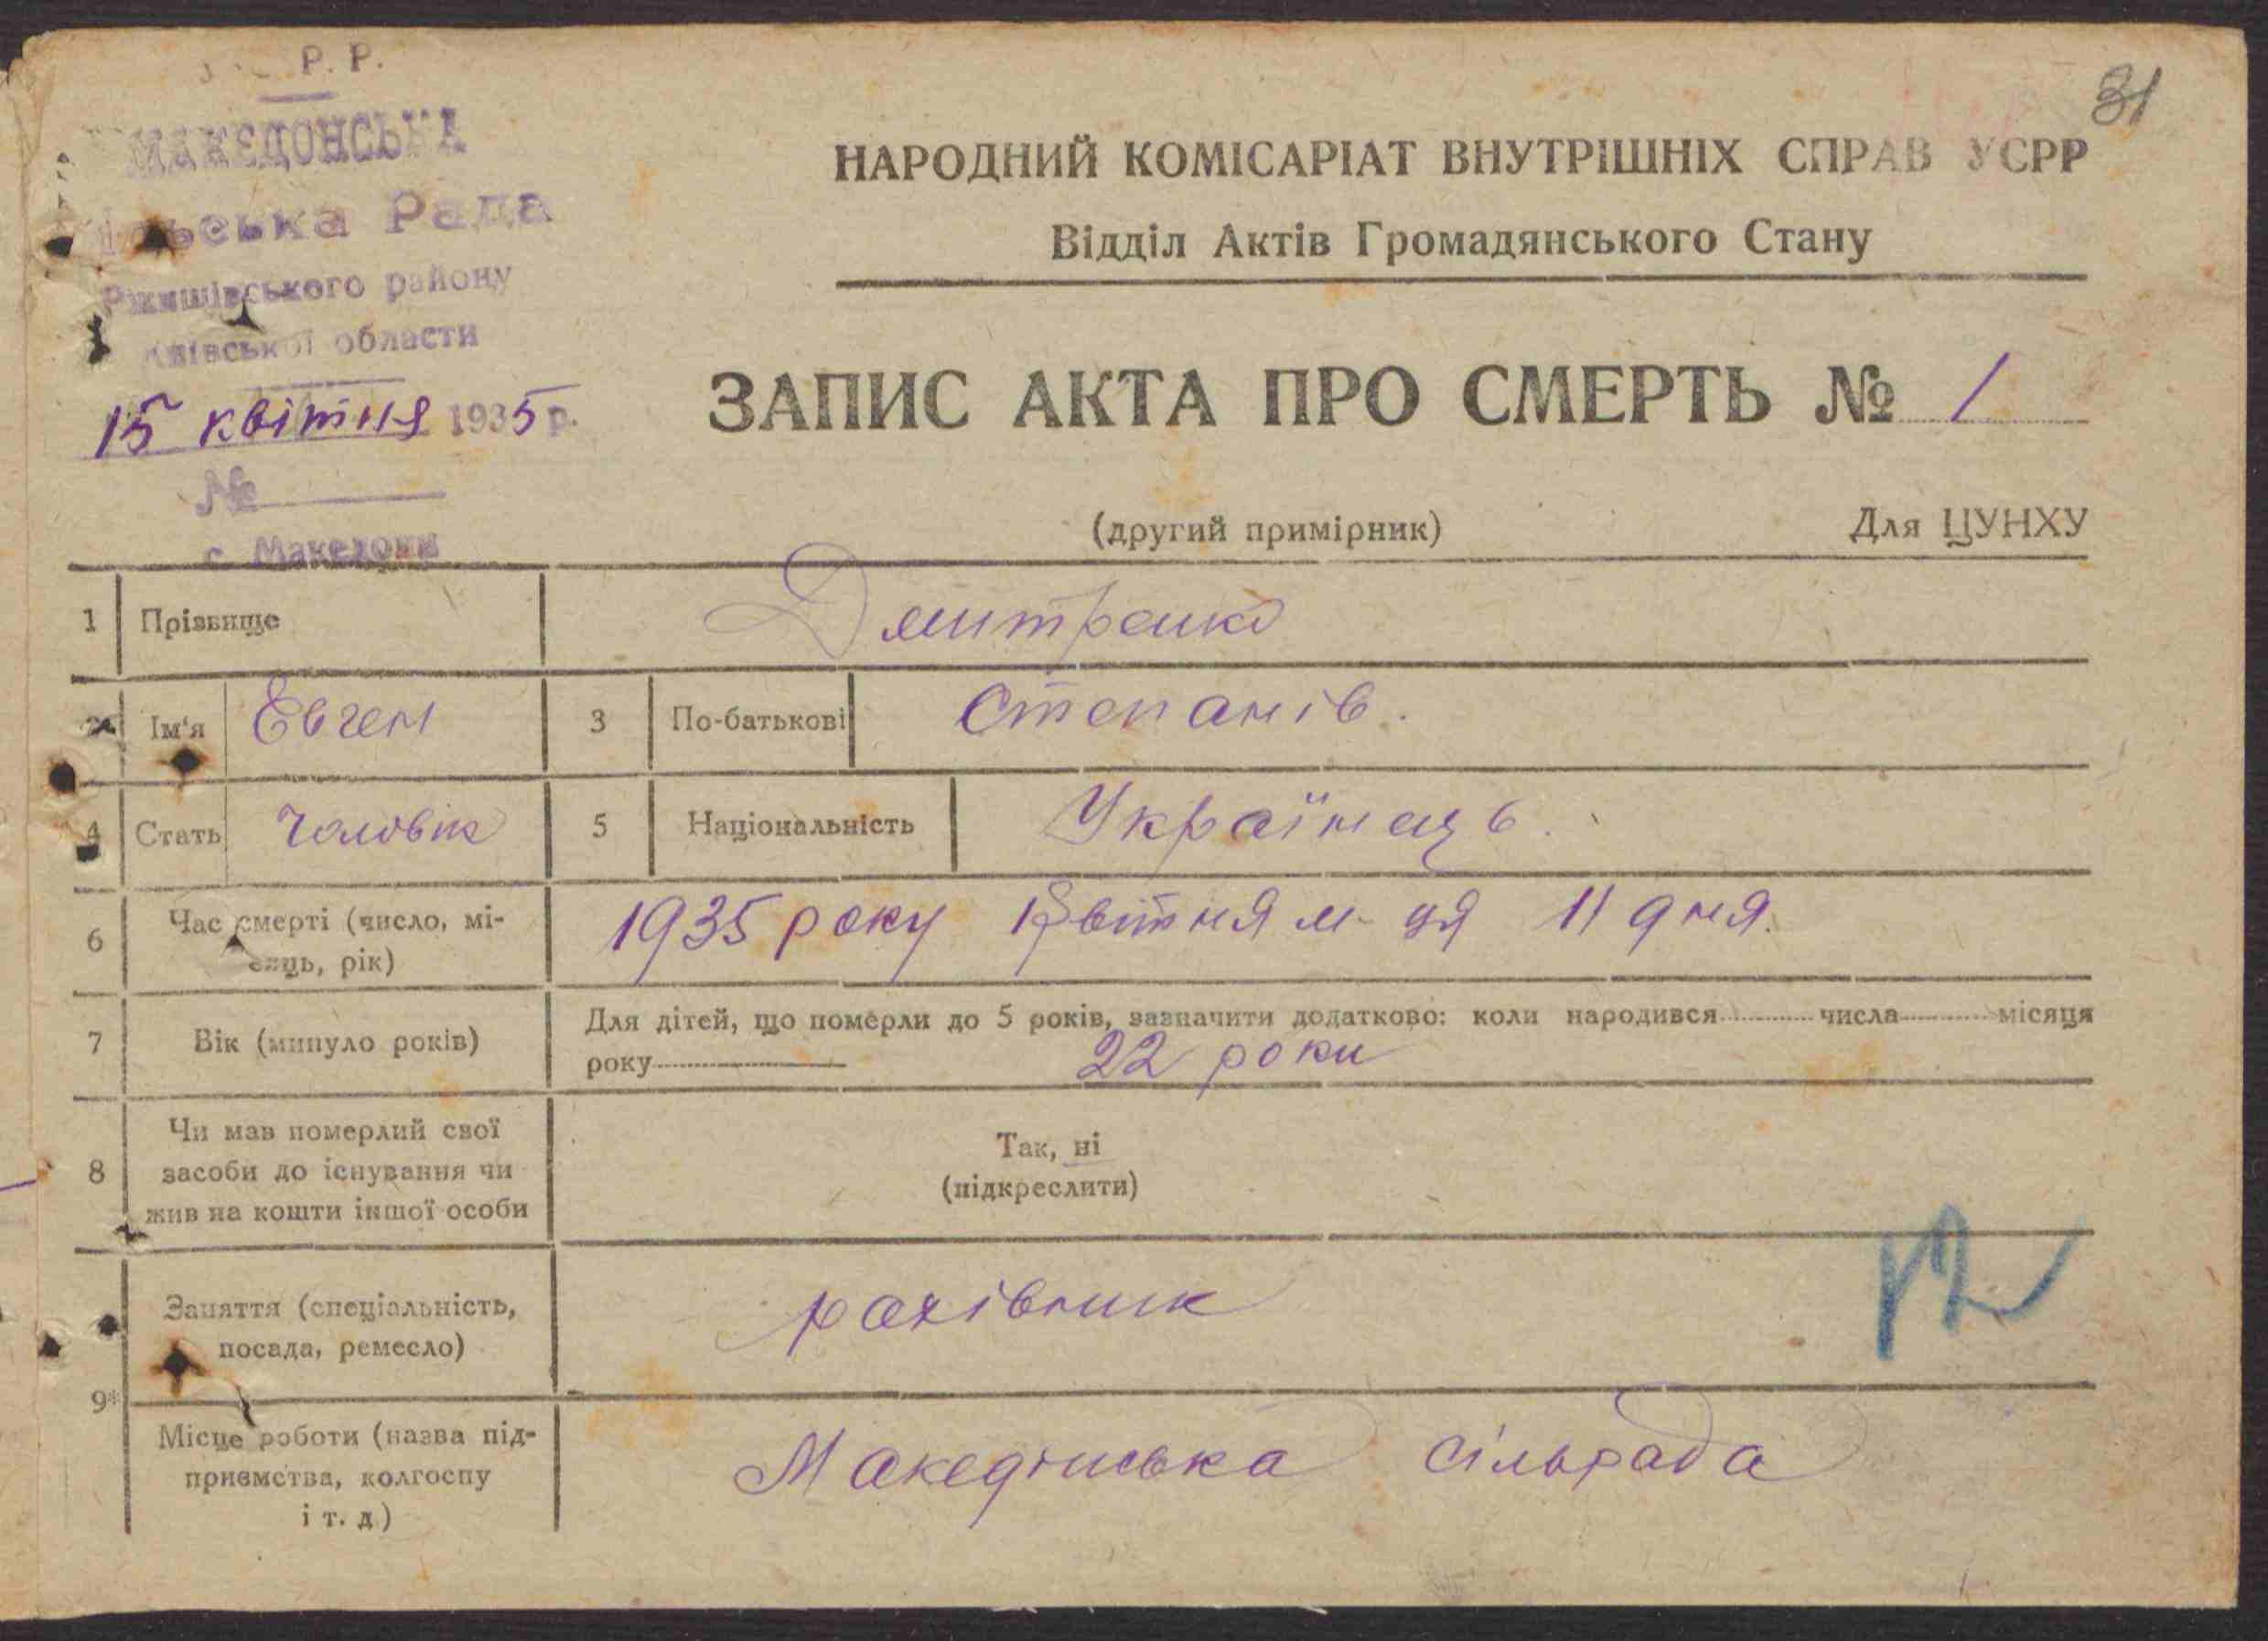 Р. Р.
МАКЕДОНСЬКА
сільська Рада
Ржищівського району
Київської области
15 квітня 1935 р.
№
с. Македони
31
НАРОДНИЙ КОМІСАРІАТ ВНУТРІШНІХ СПРАВ УСРР
Відділ Актів Громадянського Стану
ЗАПИС АКТА ПРО СМЕРТЬ № 1
(другий примірник) Для ЦУНХУ
1 Прізвище Дмитренко
2 Ім'я Евген 3 По-батькові Степанів.
4 Стать Чоловік 5 Національність Українець.
6 Час смерті (число, мі-
сяць, рік) 1935 року Квітня м-ця 11 дня.
7 Вік (минуло років) Для дітей, що померли до 5 років, зазначити додатково: коли народився числа місяця
року 22 роки
8 Чи мав померлий свої
засоби до існування чи
жив на кошти іншої особи
Так, ні
(підкреслити)
9* Заняття (спеціальність,
посада, ремесло) рахівник
Місце роботи (назва під-
приємства, колгоспу
і т. д.) Македінська сільрада